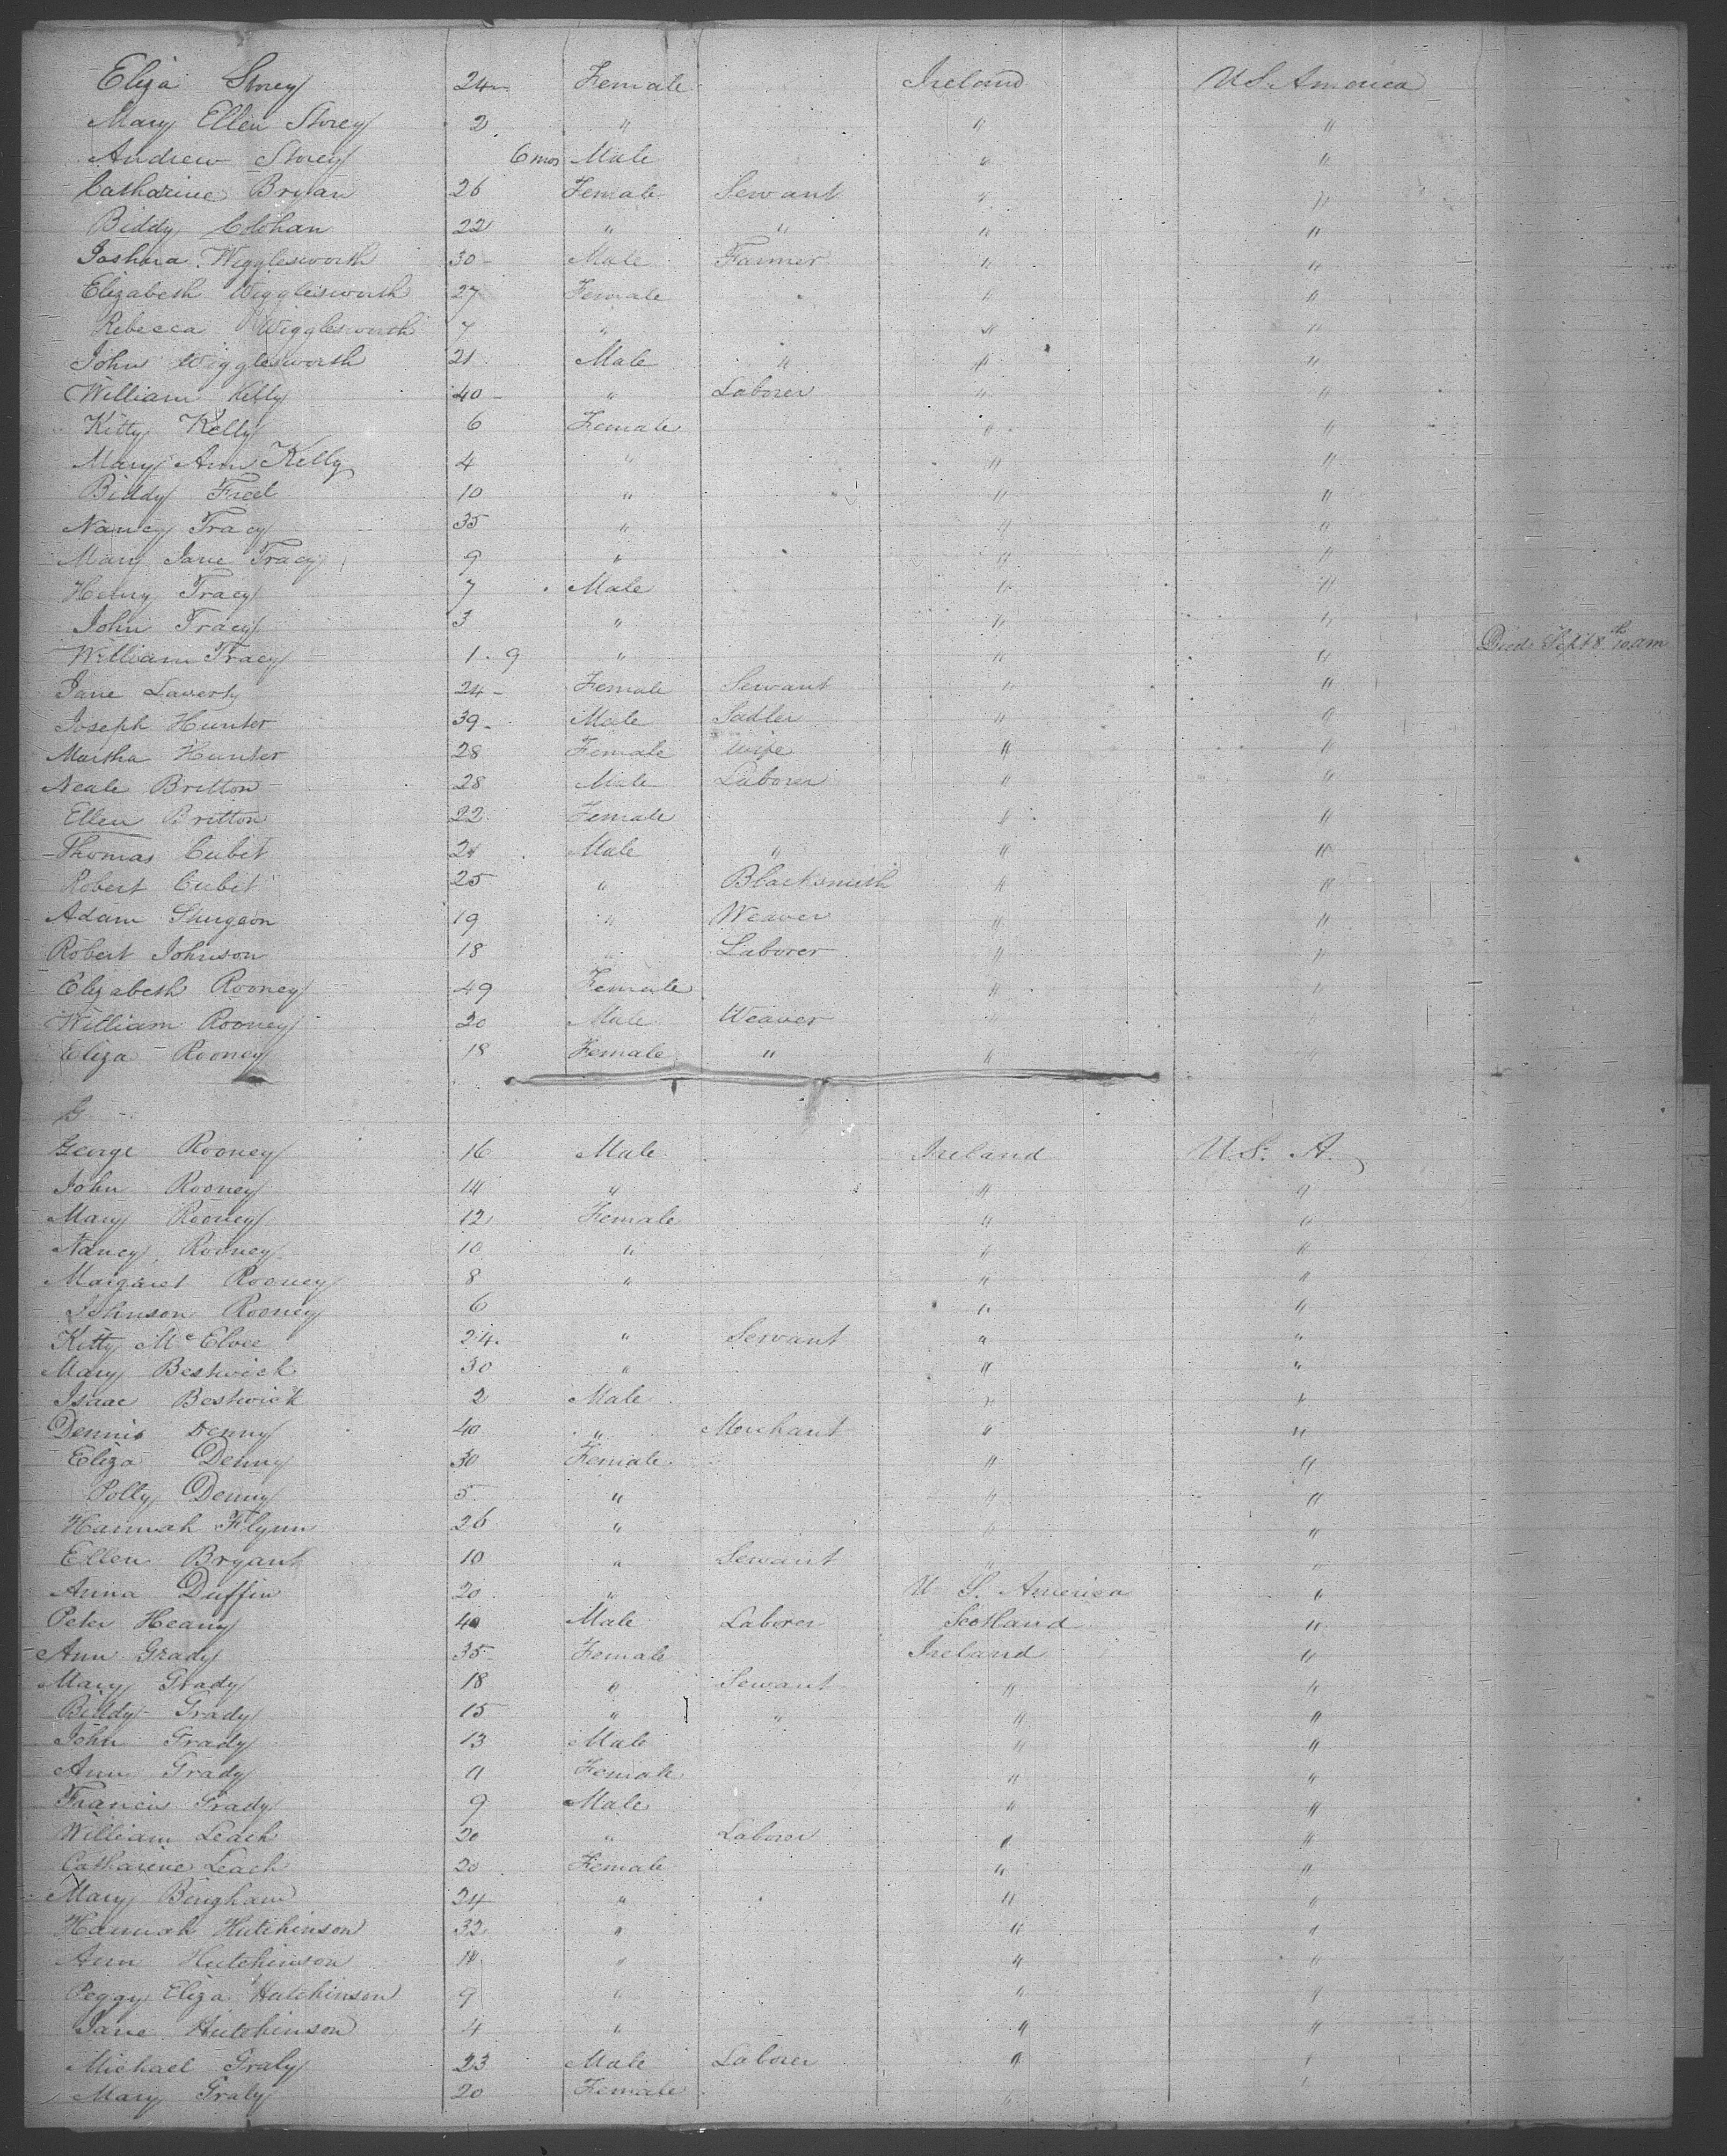 Eliza Storey 24 Female Ireland U S. America
Mary Ellen Storey 2 " " "
Andrew Storey 6 mos Male " "
Catharine Bryan 26 Female Servant " "
Biddy Colohan 22 " " " "
Joshua Wigglesworth 30 Male Farmer " "
Elizabeth Wigglesworth 27 Female " "
Rebecca Wigglesworth 7 " " "
John Wigglesworth 21 Male " " "
William Kelly 40 " Laborer " "
Kitty Kelly 6 Female " "
Mary Ann Kelly 4 " " "
Biddy Freel 10 " " "
Nancy Tracy 35 " " "
Mary Jane Tracy 9 " " "
Henry Tracy 7 Male " "
John Tracy 3 " " "
William Tracy 1 . 9 " " " Died Sept 8th 10 am
Jane Laverty 24 Female Servant " "
Joseph Hunter 39 Male Sadler " "
Martha Hunter 28 Female wife " "
Neale Britton 28 Male Laborer " "
Ellen Britton 22 Female " "
Thomas Cubit 21 Male " " "
Robert Cubit 25 " Blacksmith " "
Adam Sturgeon 19 " Weaver " "
Robert Johnson 18 " Laborer " "
Elizabeth Rooney 49 Female " "
William Rooney 20 Male Weaver " "
Eliza Rooney 18 Female " " "
G
George Rooney 16 Male Ireland U. S. A.
John Rooney 14 " " "
Mary Rooney 12 Female " "
Nancy Rooney 10 " " "
Margaret Rooney 8 " " "
Johnson Rooney 6 " "
Kitty McElvee 24 " Servant " "
Mary Bestwick 30 " " "
Isaac Bestwick 2 Male " "
Dennis Denny 40 " Merchant " "
Eliza Denny 30 Female " "
Polly Denny 5 " " "
Hannah Flynn 26 " " "
Ellen Bryant 10 " Servant " "
Anna Duffin 20 " U S. America "
Peter Heany 40 Male Laborer Scotland "
Ann Grady 35 Female Ireland "
Mary Grady 18 " Servant " "
Biddy Grady 15 " " " "
John Grady 13 Male " "
Ann Grady 11 Female " "
Francis Grady 9 Male " "
William Leach 20 " Laborer " "
Catharine Leach 20 Female " "
Mary Bingham 24 " " "
Hannah Hutchinson 32 " " "
Ann Hutchinson 11 " " "
Peggy Eliza Hutchinson 9 " " "
Jane Hutchinson 4 " " "
Michael Graly 23 Male Laborer " "
Mary Graly 20 Female " "